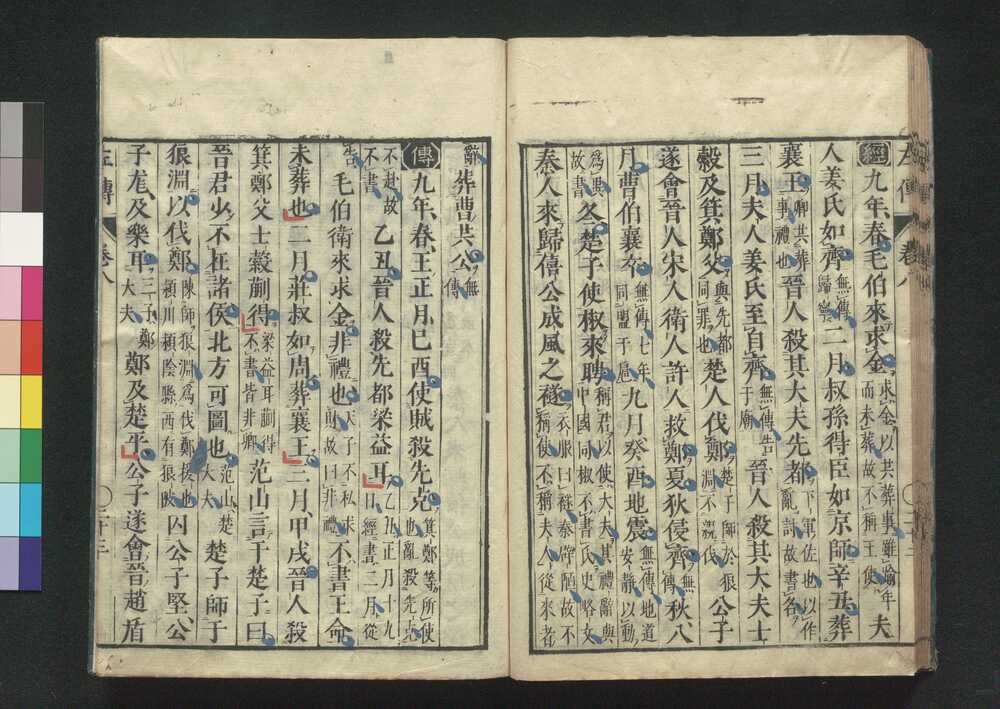 經九年春毛伯來求金求金以共葬事雖踰年而未葬故不稱王使夫
人姜氏如齊無傳歸寧二月叔孫得臣如京師辛丑葬
襄王卿共葬事禮也晉人殺其大夫先都下軍佐也以作亂討故書名
三月夫人姜氏至自齊無傳告于廟晉人殺其大夫士
縠及箕鄭父與先都同罪也楚人伐鄭楚子師於狼淵不親伐公子
遂會晉人宋人衛人許人救鄭夏狄侵齊無傳秋八
月曹伯襄卒無傳七年同盟于扈九月癸酉地震無傳地道安靜以動
爲異故書冬楚子使椒來聘稱君以使大夫其禮辭與中國同椒不書氏史略文
秦人來歸僖公成風之襚衣服曰襚秦辟陋故不稱使不稱夫人從來者
辭葬曹共公無傳
傳九年春王正月己酉使賊殺先克箕鄭等所使也亂殺先克
不赴故不書乙丑晉人殺先都梁益耳乙丑正月十九日經書二月從
告毛伯衛來求金非禮也天子不私求財故曰非禮不書王命
未葬也二月莊叔如周葬襄王三月甲戌晉人殺
箕鄭父士縠蒯得梁益耳蒯得不書皆非卿范山言于楚子曰
晉君少不在諸侯北方可圖也范山楚大夫楚子師于
狼淵以伐鄭陳師狼淵爲伐鄭援也潁川潁陰縣西有狼陂囚公子堅公
子尨及樂耳三子鄭大夫鄭及楚平公子遂會晉趙盾
左傳 卷八 二十三